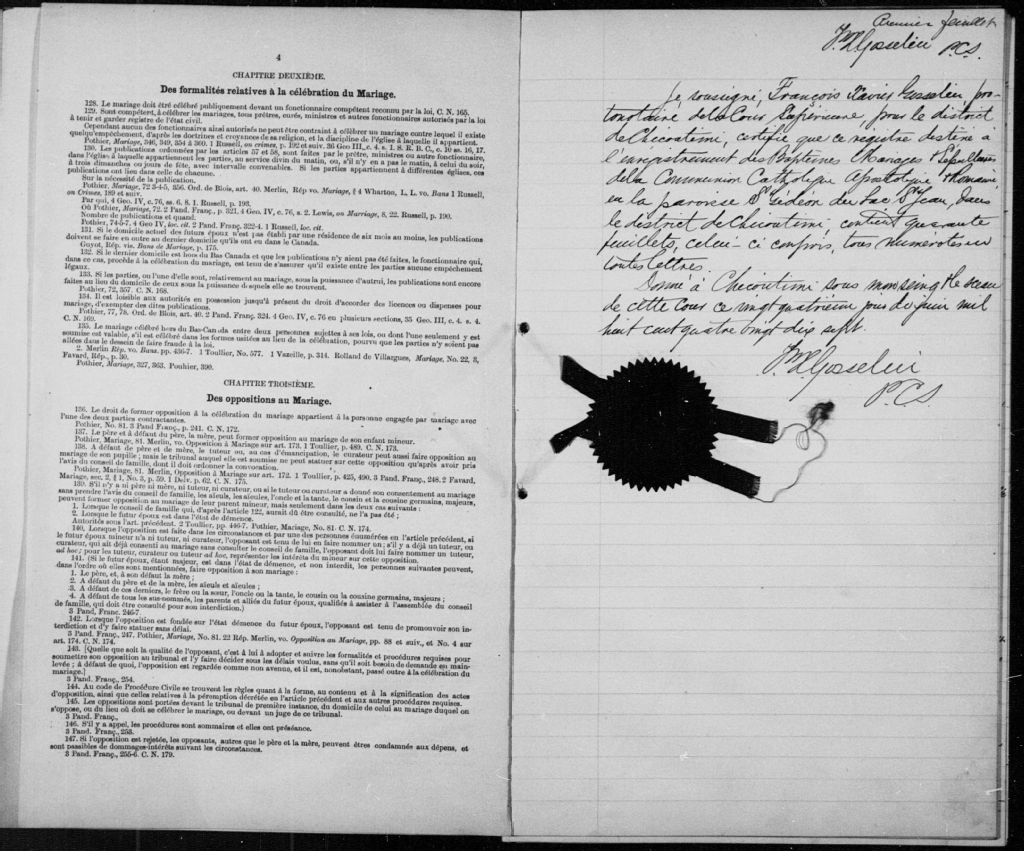 4
CHAPITRE DEUXIÈME.
Des formalités relatives à la célébration du Mariage.
128. Le mariage doit être célébré publiquement devant un fonctionnaire compétent reconnu par la loi, C. N. 165.
129. Sont compétent, à célébrer les mariages, tous prêtres, curés, ministres et autres fonctionnaires autorisés par la loi
à tenir et garder registre de l'état civil.
Cependant aucun des fonctionnaires ainsi autorisés ne peut être contraint à célébrer un mariage contre lequel il existe
quelqu'empêchement, d'après les doctrines et croyances de sa religion, et la discipline de l'église à laquelle il appartient.
Pothier, Mariage, 346, 349, 354 à 360. 1 Russell, on crimes, p. 192 et suiv. 36 Geo III, c. 4. s. 1. S. R. B. C., c. 10 ss. 16, 17.
130. Les publications ordonnées par les articles 57 et 58, sont faites par le prêtre, ministres ou autre fonctionnaire,
dans l'église à laquelle appartiennent les parties, au service divin du matin, ou, s'il n'y en a pas le matin, à celui du soir,
à trois dimanches ou jours de fête, avec intervalle convenables. Si les parties appartiennent à différentes églises, ces
publications ont lieu dans celle de chacune.
Sur la nécessité de la publication.
Pothier, Mariage, 72 3-4-5, 356. Ord. de Blois, art. 40. Merlin, Rép vo. Mariage, § 4 Wharton, L. L. vo. Bans 1 Russell,
on Crimes, 189 et suiv.
Par qui, 4 Geo. IV, c. 76, ss. 6. 8. 1. Russell, p. 193.
Où Pothier, Mariage, 72. 2 Pand. Franç. p. 321. 4 Geo IV, c. 76, s. 2. Lewis, on Marriage, 8, 22. Russell, p. 190.
Nombre de publications et quand:
Pothier, 74-5-7. 4 Geo IV, loc. cit. 2 Pand. Franç. 322-4. 1 Russell, loc. cit.
131. Si le domicile actuel des futurs époux n'est pas établi par une résidence de six mois au moins, les publications
doivent se faire en outre an dernier domicile qu'ils ont eu dans le Canada.
Guyot, Rép. vis. Bans de Mariage, p. 175.
132. Si le dernier domicile est hors du Bas Canada et que les publications n'y aient pas été faites, le fonctionnaire qui,
dans ce cas, procède à la célébration du mariage, est tenu de s'assurer qu'il existe entre les parties aucune empêchement
légaux.
133. Si les parties, ou l'une d'elle sont, relativement au mariage, sous la puissance d'autrui, les publications sont encore
faites au lieu du domicile de ceux sous la puissance desquels elle se trouvent.
Pothier, 72, 357. C. N. 168.
134. Il est loisible aux autorités en possession jusqu'à présent du droit d'accorder des licences ou dispenses pour
mariage, d'exempter des dites publications.
Pothier, 77, 78. Ord. de Blois, art. 40. 2 Pand Franç. 324. 4 Geo. IV, c. 76 en plusieurs sections, 35 Geo. III, c. 4. s. 4.
C. N. 169.
135. Le mariage célébré hors du Bas-Canada entre deux personnes sujettes à ses lois, ou dont l'une seulement y est
soumise est valable, s'il est célébré dans les formes usitées au lieu de la célébration, pourvu que les parties n'y soient pas
allées dans le dessein de faire fraude à la loi.
2. Merlin Rép. vo. Bans, pp. 436-7. 1 Toullier, No. 577. 1 Vazeille, p. 314. Rolland de Villargues, Mariage, No. 22, 3,
Favard, Rép., p. 30.
Pothier, Mariage, 327, 363. Pouhier, 390.
CHAPITRE TROISIÈME.
Des oppositions au Mariage.
136. Le droit de former opposition à la célébration du mariage appartient à la personne engagée par mariage avec
l'une des deux parties contractantes.
Pothier, No. 81. 3 Pand Franç., p. 241. C. N. 172.
137. Le père et à défaut du père, la mère, peut former opposition au mariage de son enfant mineur.
Pothier, Mariage, 81. Merlin, vo. Opposition à Mariage sur art. 173. 1 Toullier, p. 489. C. N. 173.
138. A défaut de père et de mère, le tuteur ou, au cas d'émancipation, le curateur peut aussi faire opposition au
mariage de son pupille; mais le tribunal auquel elle est soumise ne peut statuer sur cette opposition qu'après avoir pris
l'avis du conseil de famille, dont il doit ordonner la convocation.
Pothier, Mariage, 81. Merlin, Opposition à Mariage sur art. 172. 1 Toullier, p. 425, 490. 3 Pand. Franç., 248. 2 Favard,
Mariage, sec, 2, § 1, No. 3, p. 59. 1 Delv. p. 62. C. N. 175.
139. S'il n'y a ni père ni mère, ni tuteur, ni curateur, ou si le tuteur ou curateur a donné son consentement au mariage
sans prendre l'avis du conseil de famille, les aïeuls, les aïeules, l'oncle et la tante, le cousin et la cousine germains, majeurs,
peuvent former opposition au mariage de leur parent mineur, mais seulement dans les deux cas suivants:
1. Lorsque le conseil de famille qui, d'après l'article 122, aurait dû être consulté, ne l'a pas été;
2. Lorsque le futur époux est dans l'état de démence.
Autorités sous l'art. précédent. 2 Toullier, pp. 446-7. Pothier, Mariage, No. 81. C. N. 174.
140. Lorsque l'opposition est faite dans les circonstances et par une des personnes énumérées en l'article précédent, si
le futur époux mineur n'a ni tuteur, ni curateur, l'opposant est tenu de lui en faire nommer un; s'il y a déjà un tuteur, ou
curateur, qui ait déjà consenti au mariage sans consulter le conseil de famille, l'opposant doit lui faire nommer un tuteur,
ad hoc; pour les tuteur, curateur ou tuteur ad hoc, représenter les intérêts du mineur sur cette opposition.
141. (Si le futur époux, étant majeur, est dans l'état de démence, et non interdit, les personnes suivantes peuvent,
dans l'ordre où elles sont mentionnées, faire opposition à son mariage:
1. Le père, et, à son défaut la mère;
2. A défaut du père et de la mère, les aïeuls et aïeules;
3. A défaut de ces derniers, le frère ou la sœur, l'oncle ou la tante, le cousin ou la cousine germains, majeurs;
4. A défaut de tous les sus-nommés, les parents et alliés du futur époux, qualifiés à assister à l'assemblée du conseil
de famille, qui doit être consulté pour son interdiction.)
3 Pand, Franc. 246-7.
142. Lorsque l'opposition est fondée sur l'état démence du futur époux, l'opposant est tenu de promouvoir son in-
terdiction et d'y faire statuer sans délai.
3 Pand. Franç., 247. Pothier, Mariage, No. 81. 22 Rép. Merlin, vo. Opposition au Mariage, pp. 88 et suiv., et No. 4 sur
art. 174. C. N. 174.
143. [Quelle que soit la qualité de l'opposant, c'est à lui à adopter et suivre les formalités et procédures requises pour
soumettre son opposition au tribunal et l'y faire décider sous les délais voulus, sans qu'il soit besoin de demande en main-
levée; à défaut de quoi, l'opposition est regardée comme non avenue, et il est, nonobstant, passé outre à la célébration du
mariage.]
3 Pand. Franç., 254.
144. Au code de Procédure Civile se trouvent les règles quant à la forme, au contenu et à la signification des actes
d'opposition, ainsi que celles relatives à la péremption décrétée en l'article précédent et aux autres procédures requises.
145. Les oppositions sont portées devant le tribunal de première instance, du domicile de celui au mariage duquel on
s'oppose, ou du lieu où doit se célébrer le mariage, ou devant un juge de ce tribunal.
3 Pand. Franç.,
146. S'il y a appel, les procédures sont sommaires et elles ont préséance.
3 Pand. Franç., 253.
147. Si l'opposition est rejetée, les opposants, autres que le père et la mère, peuvent être condamnés aux dépens, et
sont passibles de dommages-intérêts suivant les circonstances.
3 Pand. Franç., 255-6. C. N. 179.
Premier feuillet
F X Gosselin P.C.S.
Je, soussigné, François Xavier Gosselin pro-
tonotaire de la Cour Supérieure pour le district
de Chicoutimi, certifie que ce registre destiné à
l'enregistrement des Baptêmes Mariages & Sépultures
de la Communion Catholique Apostolique & Romaine,
en la paroisse St Gédéon du Lac St Jean, dans
le district de Chicoutimi, contient quarante
feuillets, celui-ci compris, tous numérotés en
toutes lettres.
Donné à Chicoutimi sous mon seing & le sceau
de cette Cour ce vingt quatrième jour de juin mil
huit cent quatre vingt dix sept.
F X Gosselin
P.C.S.